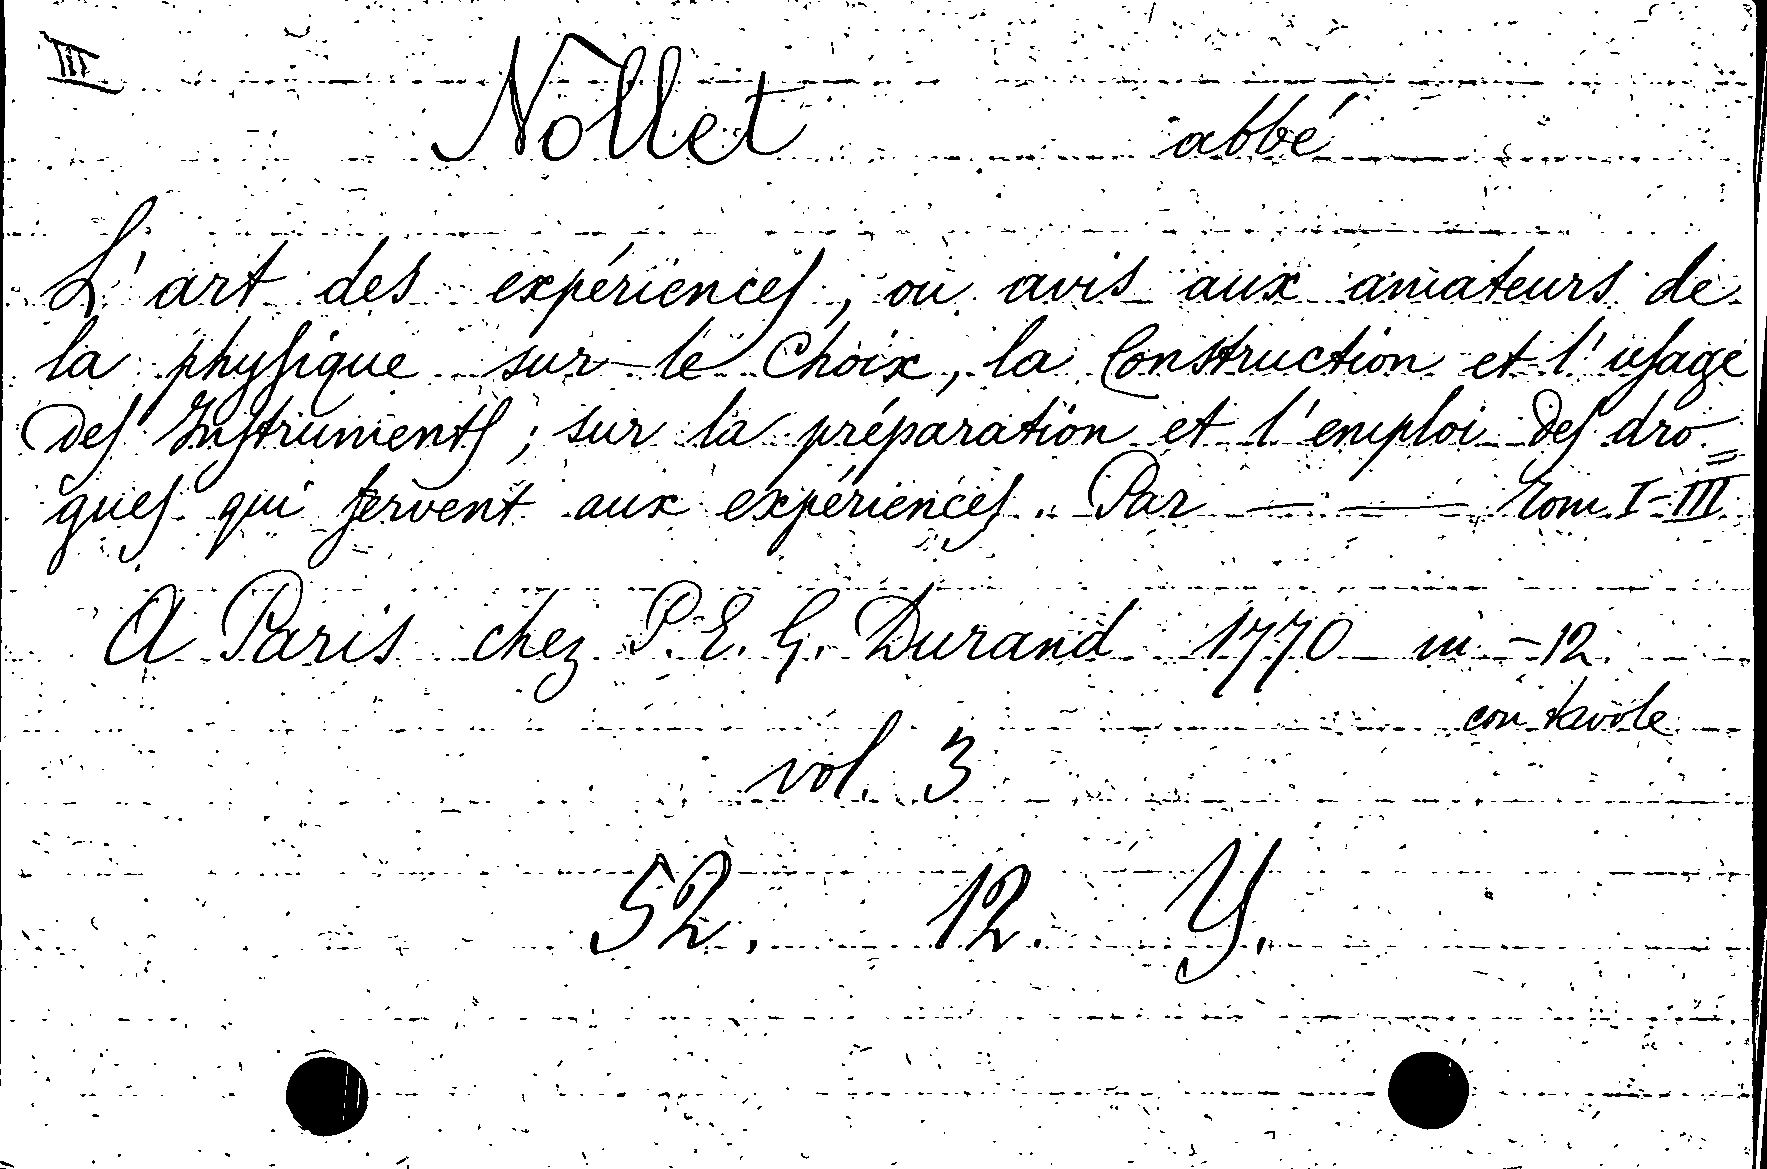 III
Nollet abbé
L'art des expériences, ou avis aux amateurs de
la physique sur le Choix, la Construction et l'usage
des Instruments; sur la préparation et l'emploi des dro=
gues qui servent aux expériences. Par — — Tom. I-III
A Paris chez P. E. G. Durand 1770 in-12.
con tavole
vol. 3
52. 12. Y.